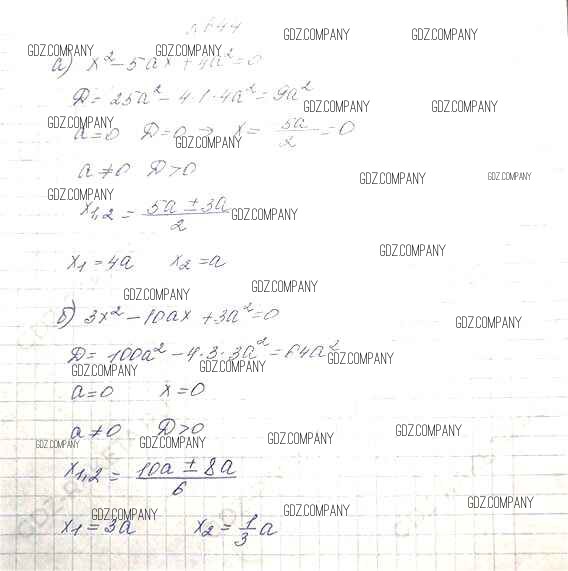 №644
GDZ.COMPANY
GDZ.COMPANY GDZ.COMPANY GDZ.COMPANY
а) x² − 5ax + 4a² = 0
D = 25a² − 4·1·4a² = 9a²
GDZ.COMPANY GDZ.COMPANY
GDZ.COMPANY
a = 0 D = 0 ⇒ x = 5a/2 = 0
GDZ.COMPANY
a ≠ 0 D > 0
GDZ.COMPANY GDZ.COMPANY
GDZ.COMPANY
x1,2 = (5a ± 3a)/2
GDZ.COMPANY
GDZ.COMPANY
x1 = 4a x2 = a
GDZ.COMPANY GDZ.COMPANY
б) 3x² − 10ax + 3a² = 0
GDZ.COMPANY
D = 100a² − 4·3·3a² = 64a²
GDZ.COMPANY
GDZ.COMPANY GDZ.COMPANY
a = 0 x = 0
a ≠ 0 D > 0
GDZ.COMPANY GDZ.COMPANY GDZ.COMPANY GDZ.COMPANY
x1,2 = (10a ± 8a)/6
GDZ.COMPANY GDZ.COMPANY GDZ.COMPANY
x1 = 3a x2 = 1/3 a